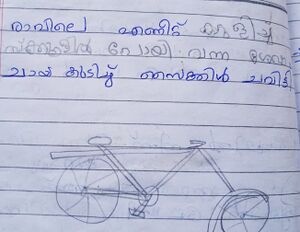 രാവിലെ എണീട് കുളിച്ച്
സ്കൂളിൽ പോയി വന്ന ശേഷം
ചായ കുടിച്ച് സൈക്കിൾ ചവിട്ടി